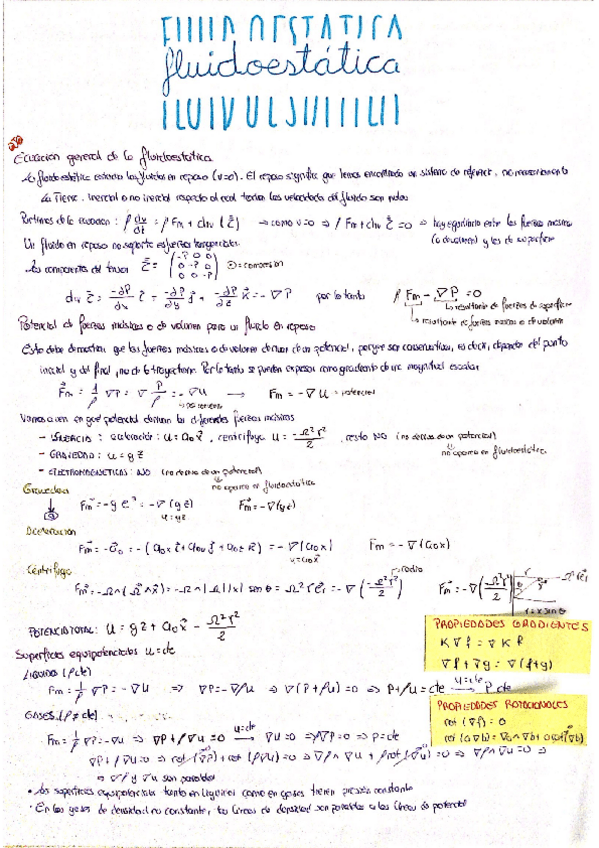 fluidoestática
Ecuación general de la fluidoestática
La fluidoestática estudia los fluidos en reposo (v=0). El reposo significa que hemos encontrado un sistema de referencia, no necesariamente
la Tierra, inercial o no inercial respecto al cual todas las velocidades del fluido son nulas
Partimos de la ecuación: ρ dv/dt = ρ Fm + div (τ) → como v=0 ⇒ ρ Fm + div τ = 0 ⇒ hay equilibrio entre las fuerzas másicas
(o de volumen) y las de superficie
Un fluido en reposo no soporta esfuerzos tangenciales.
Las componentes del tensor τ = (-P 0 0 / 0 -P 0 / 0 0 -P) ⊖ = compresión
div τ = -∂P/∂x i + -∂P/∂y j + -∂P/∂z k = -∇P por lo tanto ρ Fm - ∇P = 0
↳ resultante de fuerzas de superficie
↳ resultante de fuerzas másicas o de volumen
Potencial de fuerzas másicas o de volumen para un fluido en reposo
Esto debe demostrar que las fuerzas másicas o de volumen derivan de un potencial, porque son conservativas, es decir, dependen del punto
inicial y del final, no de la trayectoria. Por lo tanto se pueden expresar como gradiente de una magnitud escalar
Fm = 1/ρ ∇P = ∇ P/ρ = -∇U → Fm = -∇U = potencial
Vamos a ver en qué potencial derivan las diferentes fuerzas másicas
- INERCIA: aceleración: U = a₀x, centrífuga U = -Ω²r²/2, resto NO (no deriva de un potencial)
no aparece en fluidoestática
- GRAVEDAD: U = gz
- ELECTROMAGNÉTICAS: NO (no deriva de un potencial)
no aparece en fluidoestática
Gravedad
Fm = -g e = -∇(gz) Fm = -∇(gz)
U = gz
Aceleración
Fm = -a₀ = -(a₀x i + a₀y j + a₀z k) = -∇(a₀x) Fm = -∇(a₀x)
U = a₀x
Centrífuga
radio
Fm = -Ω∧(Ω∧x) = -Ω∧|Ω||x| sen θ = Ω² r e = -∇(-Ω²r²/2) Fm = -∇(-Ω²r²/2)
r = x sen θ
POTENCIAL TOTAL: U = gz + a₀x - Ω²r²/2
PROPIEDADES GRADIENTES
K∇f = ∇Kf
∇f + ∇g = ∇(f+g)
Superficies equipotenciales U = cte
LÍQUIDO (ρ cte)
Fm = 1/ρ ∇P = -∇U ⇒ ∇P = -∇ρU ⇒ ∇(P+ρU) = 0 ⇒ P+ρU = cte → U=cte P cte
PROPIEDADES ROTACIONALES
rot (∇f) = 0
GASES (ρ ≠ cte)
Fm = 1/ρ ∇P = -∇U ⇒ ∇P + ρ∇U = 0 → U=cte ∇U = 0 ⇒ ∇P = 0 ⇒ P = cte
∇P + ρ∇U = 0 ⇒ rot(∇P) + rot(ρ∇U) = 0 ⇒ ∇ρ∧∇U + ρ rot(∇U) = 0 ⇒ ∇ρ∧∇U = 0 ⇒
⇒ ∇ρ y ∇U son paralelos
• Las superficies equipotenciales tanto en líquidos como en gases tienen presión constante
• En los gases de densidad no constante, las líneas de densidad son paralelas a las líneas de potencial